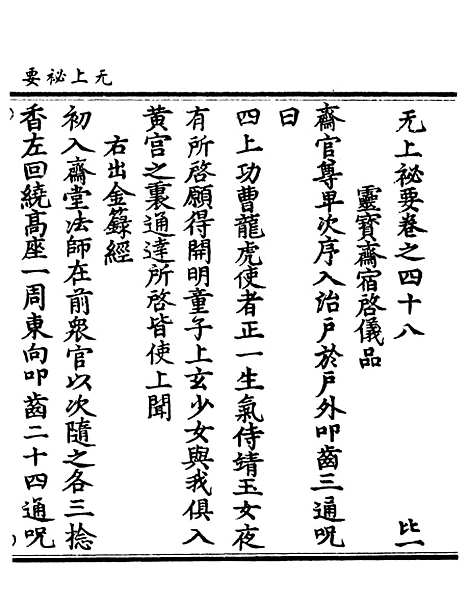 无上祕要
无上祕要卷之四十八 比一
靈寶齋宿啓儀品
齋官尊卑次序入治戶於戶外叩齒三通呪
曰
四上功曹龍虎使者正一生氣侍靖玉女夜
有所啓願得開明童子上玄少女與我俱入
黄宫之裏通達所啓皆使上聞
右出金籙經
初入齋堂法師在前衆官以次隨之各三捻
香左回繞髙座一周東向叩齒二十四通呪